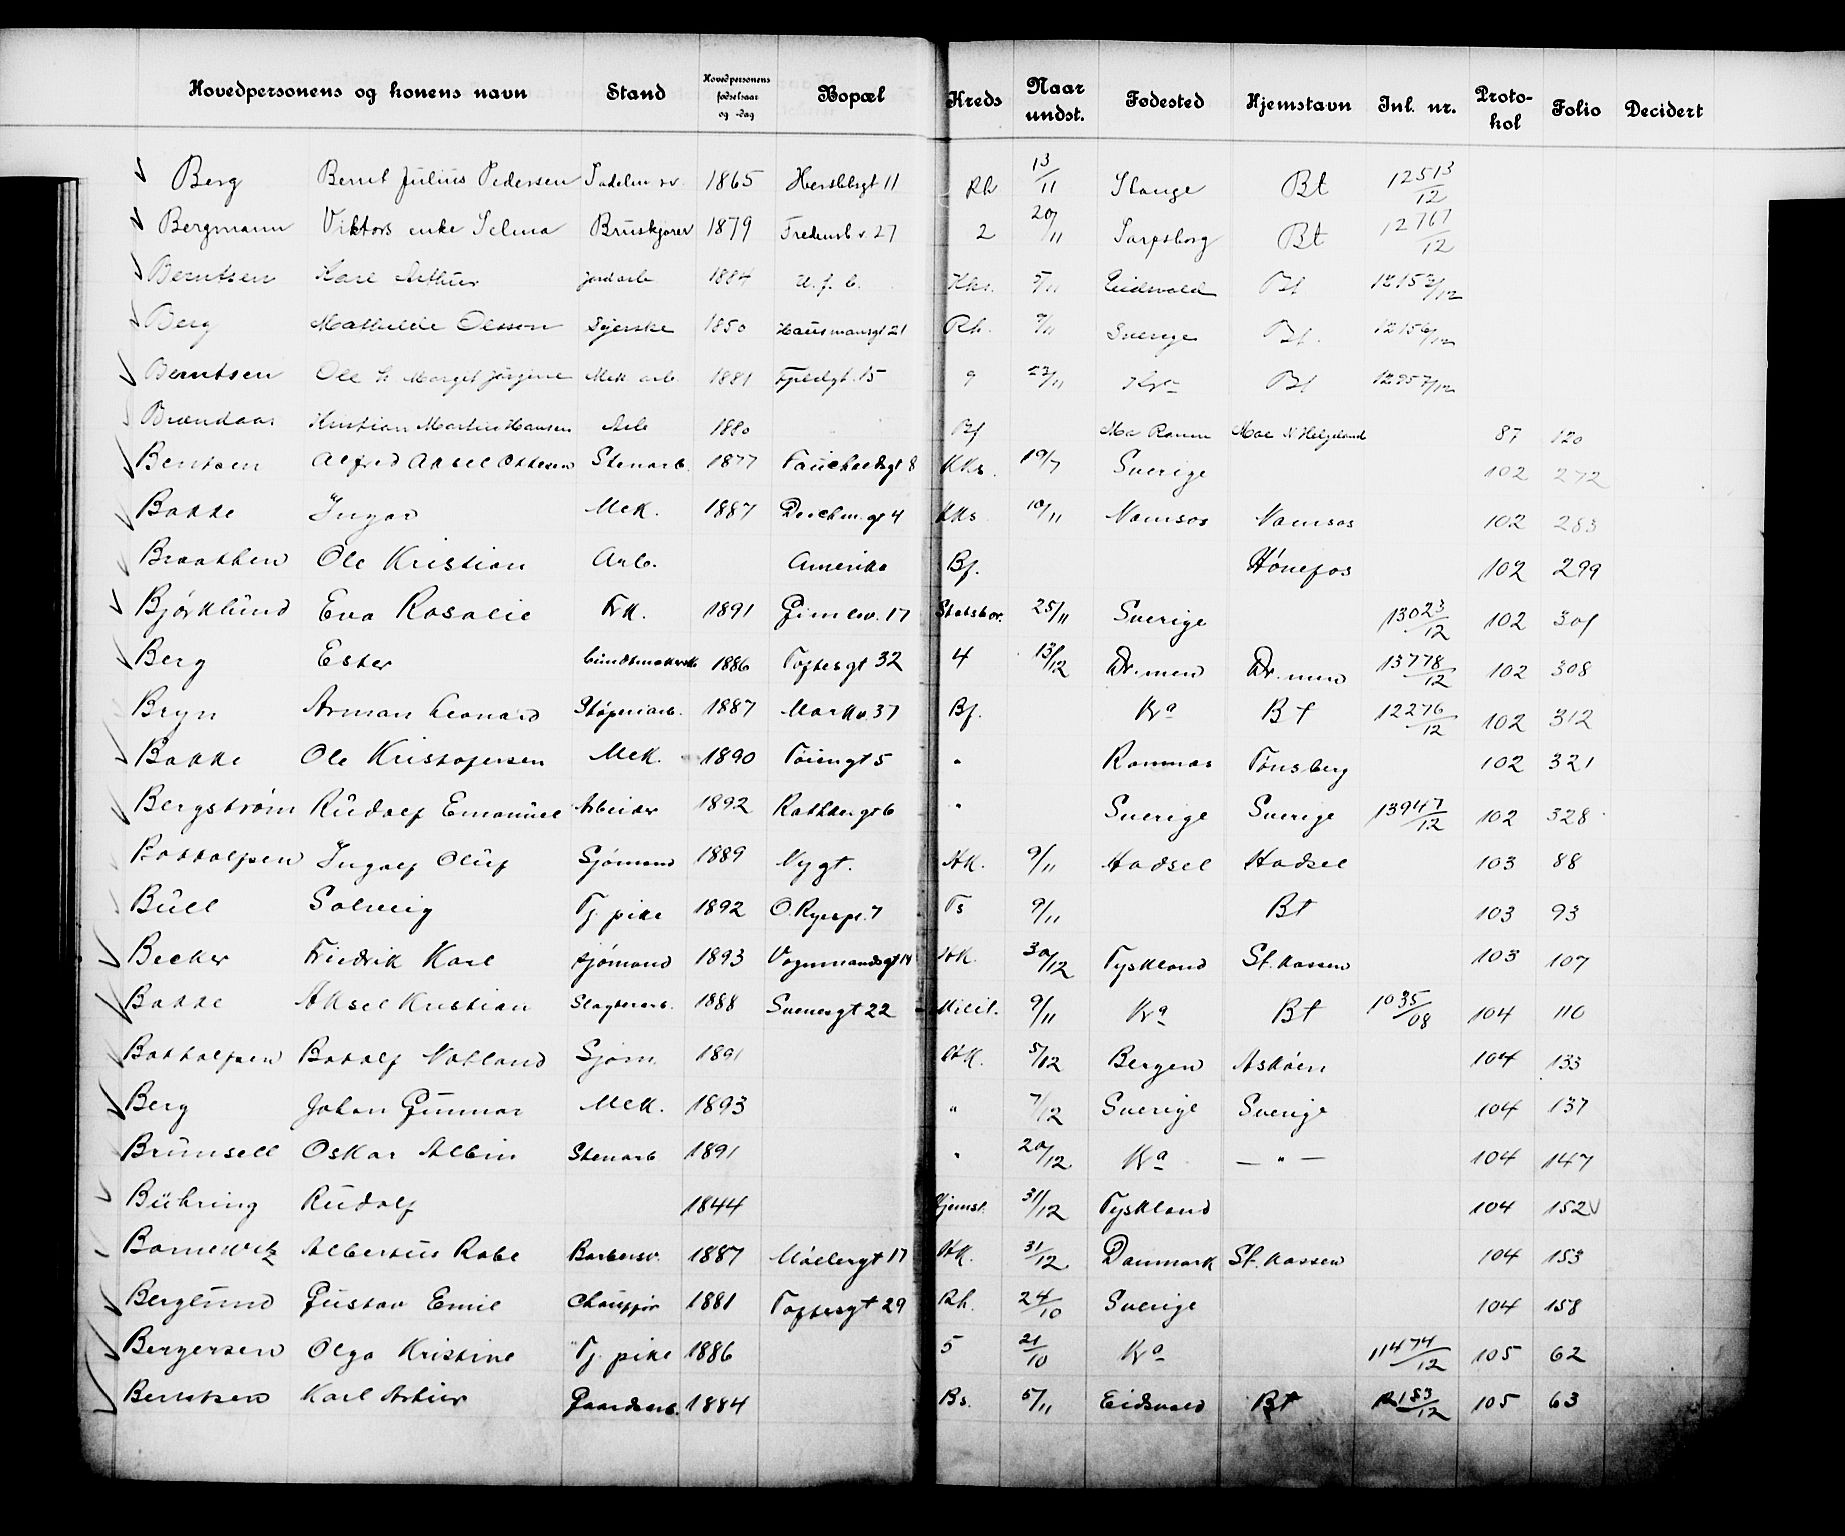 Hovedpersonens og konens navn Stand Hovedpersonens fødselsaar og -dag Bopæl Kreds Naar undst. Fødested Hjemstavn Inl. nr. Protokol Folio Decidert
Berg Bernt Julius Pedersen 1865 11 Rh 13/11 Stange Bt 12513/12
Bergmann Viktors enke Selma Bruskjører 1879 Fredensb.v. 27 2 20/11 Sarpsborg Bt 12767/12
Berntsen Karl Arthur Jordarb 1884 u. f. b. Kks. 5/11 Eidsvold Bt 12152/12
Berg Mathilde Olsson Syerske 1850 Hausmansgt 21 Rh. 7/11 Sverige Bt. 12156/12
Berntsen Ole & Marget Jørgine Mek arb. 1881 15 9 23/11 Kr.a Bt 12957/12
Brændaas Kristian Martin Hansen Arb 1880 Bf Mo Ranen Moe N Helgeland 87 120
Bentsen Alfred Aksel Ottesen Stenarb. 1877 Fauchaldsgt 8 Kks. 19/7 Sverige 102 272
Bakke Ingar Mek. 1887 Deichm.gt 4 Kks 10/11 Namsos Namsos 102 283
Braathen Ole Kristian Arb. Amerika Bf. Hønefos 102 299
Bjørklund Eva Rosalie Frk. 1891 Gimlev. 17 Statsbor. 25/11 Sverige 13023/12 102 301
Berg Ester Buntmakerske 1886 Toftesgt 32 4 13/12 Dr.men Dr.men 13778/12 102 308
Bryn Arman Leonard Støperiarb. 1887 Markv. 37 Bf. Kr.a Bt 12276/12 102 312
Bakke Ole Kristofersen Mek. 1890 Tøiengt 5 " Ramnæs Tønsberg 102 321
Bergstrøm Rudolf Emanuel Arbeider 1892 Rathkesgt 6 " Sverige Sverige 13947/12 102 328
Bottolfsen Ingolf Oluf Sjømand 1889 Nygt. Ak. 9/11 Hadsel Hadsel 103 88
Bull Solveig Tj. pike 1892 O. Ryespl. 7 Ts 9/11 Bt 103 93
Becker Fredrik Karl Sjømand 1893 Vognmandsgt 14 Ak. 30/12 Tyskland St. kassen 103 107
Bakke Aksel Kristian Slagterarb. 1888 Svenesgt 22 Milit. 9/11 Kr.a Bt 1035/08 104 110
Bottolfsen Botolf Natland Sjøm. 1891 Ak. 5/12 Bergen Askøen 104 133
Berg Johan Gunnar Mek. 1893 " 7/12 Sverige Sverige 104 137
Brunsell Oskar Albin Stenarb 1891 " 20/12 Kr.a — " — 104 147
Bühring Rudolf 1844 Hjemst. 31/12 Tyskland 104 152
Bornewitz Albertus Rabe Barbersv. 1887 Møllergt 17 Ak. 31/12 Danmark St. kassen 104 153
Berglund Gustav Emil Chauffør 1881 Toftesgt 29 Rh. 24/10 Sverige 104 158
Bergersen Olga Kristine Tj. pike 1886 5 21/10 Kr.a 11474/12 105 62
Berntsen Karl Artur Gaardsarb. 1884 Bs. 5/11 Eidsvold Bt 105 63